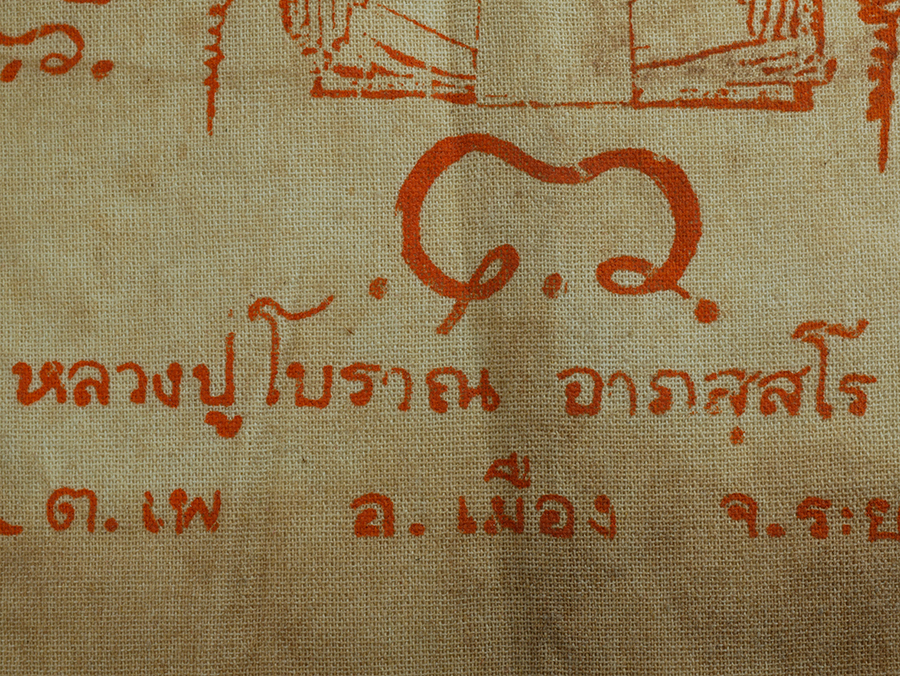 หลวงปู่โบราณ อาภสฺสโร
ต.เพ อ.เมือง จ.ระย